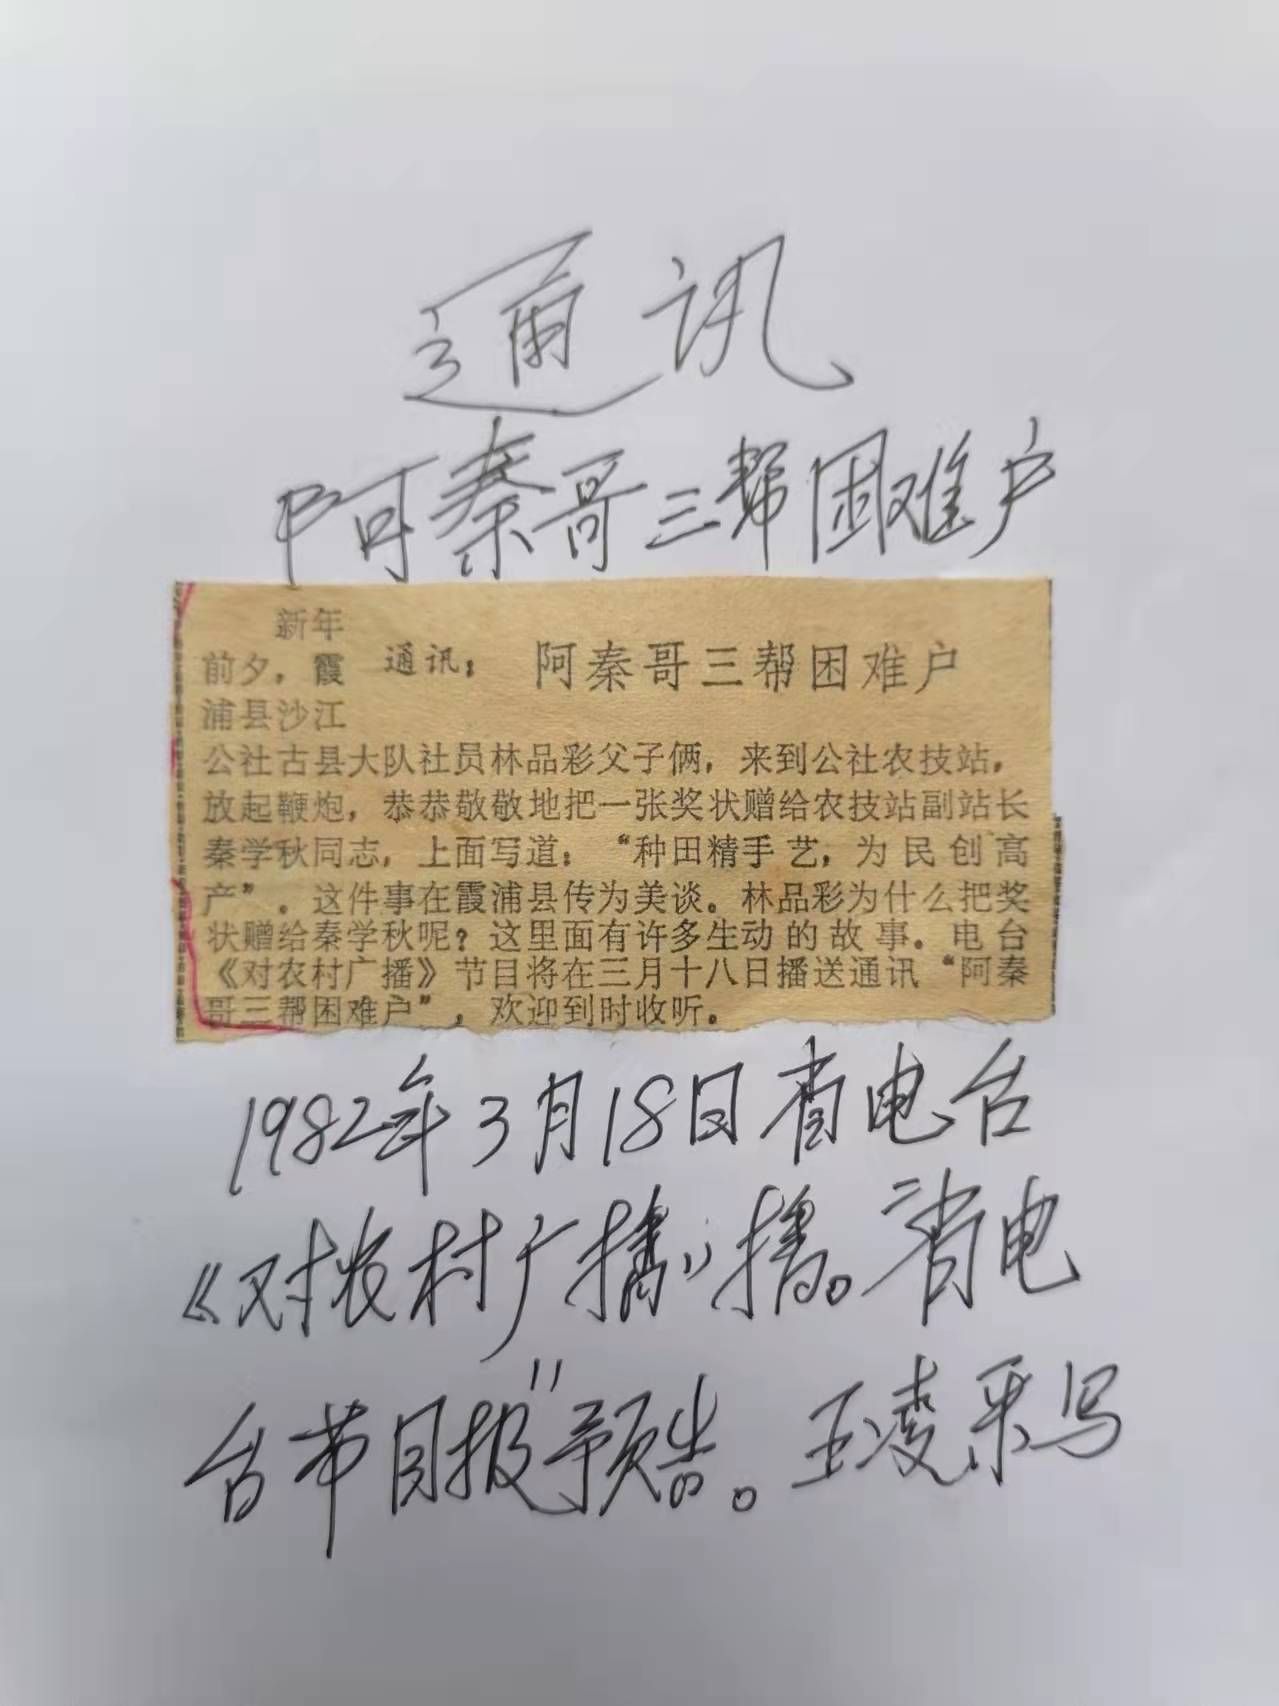 通讯
阿秦哥三帮困难户
新年
前夕，霞
浦县沙江
通讯：阿秦哥三帮困难户
公社古县大队社员林品彩父子俩，来到公社农技站，
放起鞭炮，恭恭敬敬地把一张奖状赠给农技站副站长
秦学秋同志，上面写道：“种田精手艺，为民创高
产”。这件事在霞浦县传为美谈。林品彩为什么把奖
状赠给秦学秋呢？这里面有许多生动的故事。电台
《对农村广播》节目将在三月十八日播送通讯“阿秦
哥三帮困难户”，欢迎到时收听。
1982年3月18日省电台
《对农村广播》播。省电
台节目报”预告。王凌采写